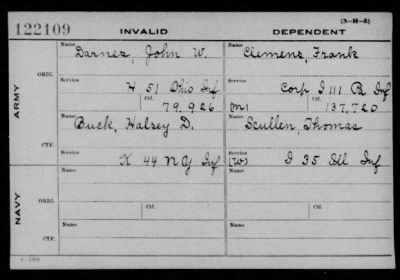 (3-H-5)
122109 INVALID DEPENDENT
Name Darnez, John W. Name Clemens, Frank
ORIG.
Service H 51 Ohio Inf Service Corp I 111 Pa Inf
Ctf. 79.926 M1 Ctf. 137,720
ARMY
Name Buck, Halsey D. Name Scullen, Thomas
CTF.
Service K 44 N Y Inf Service (W) I 35 Ill Inf
Name Name
ORIG.
Ctf. Ctf.
NAVY
Name Name
CTF.